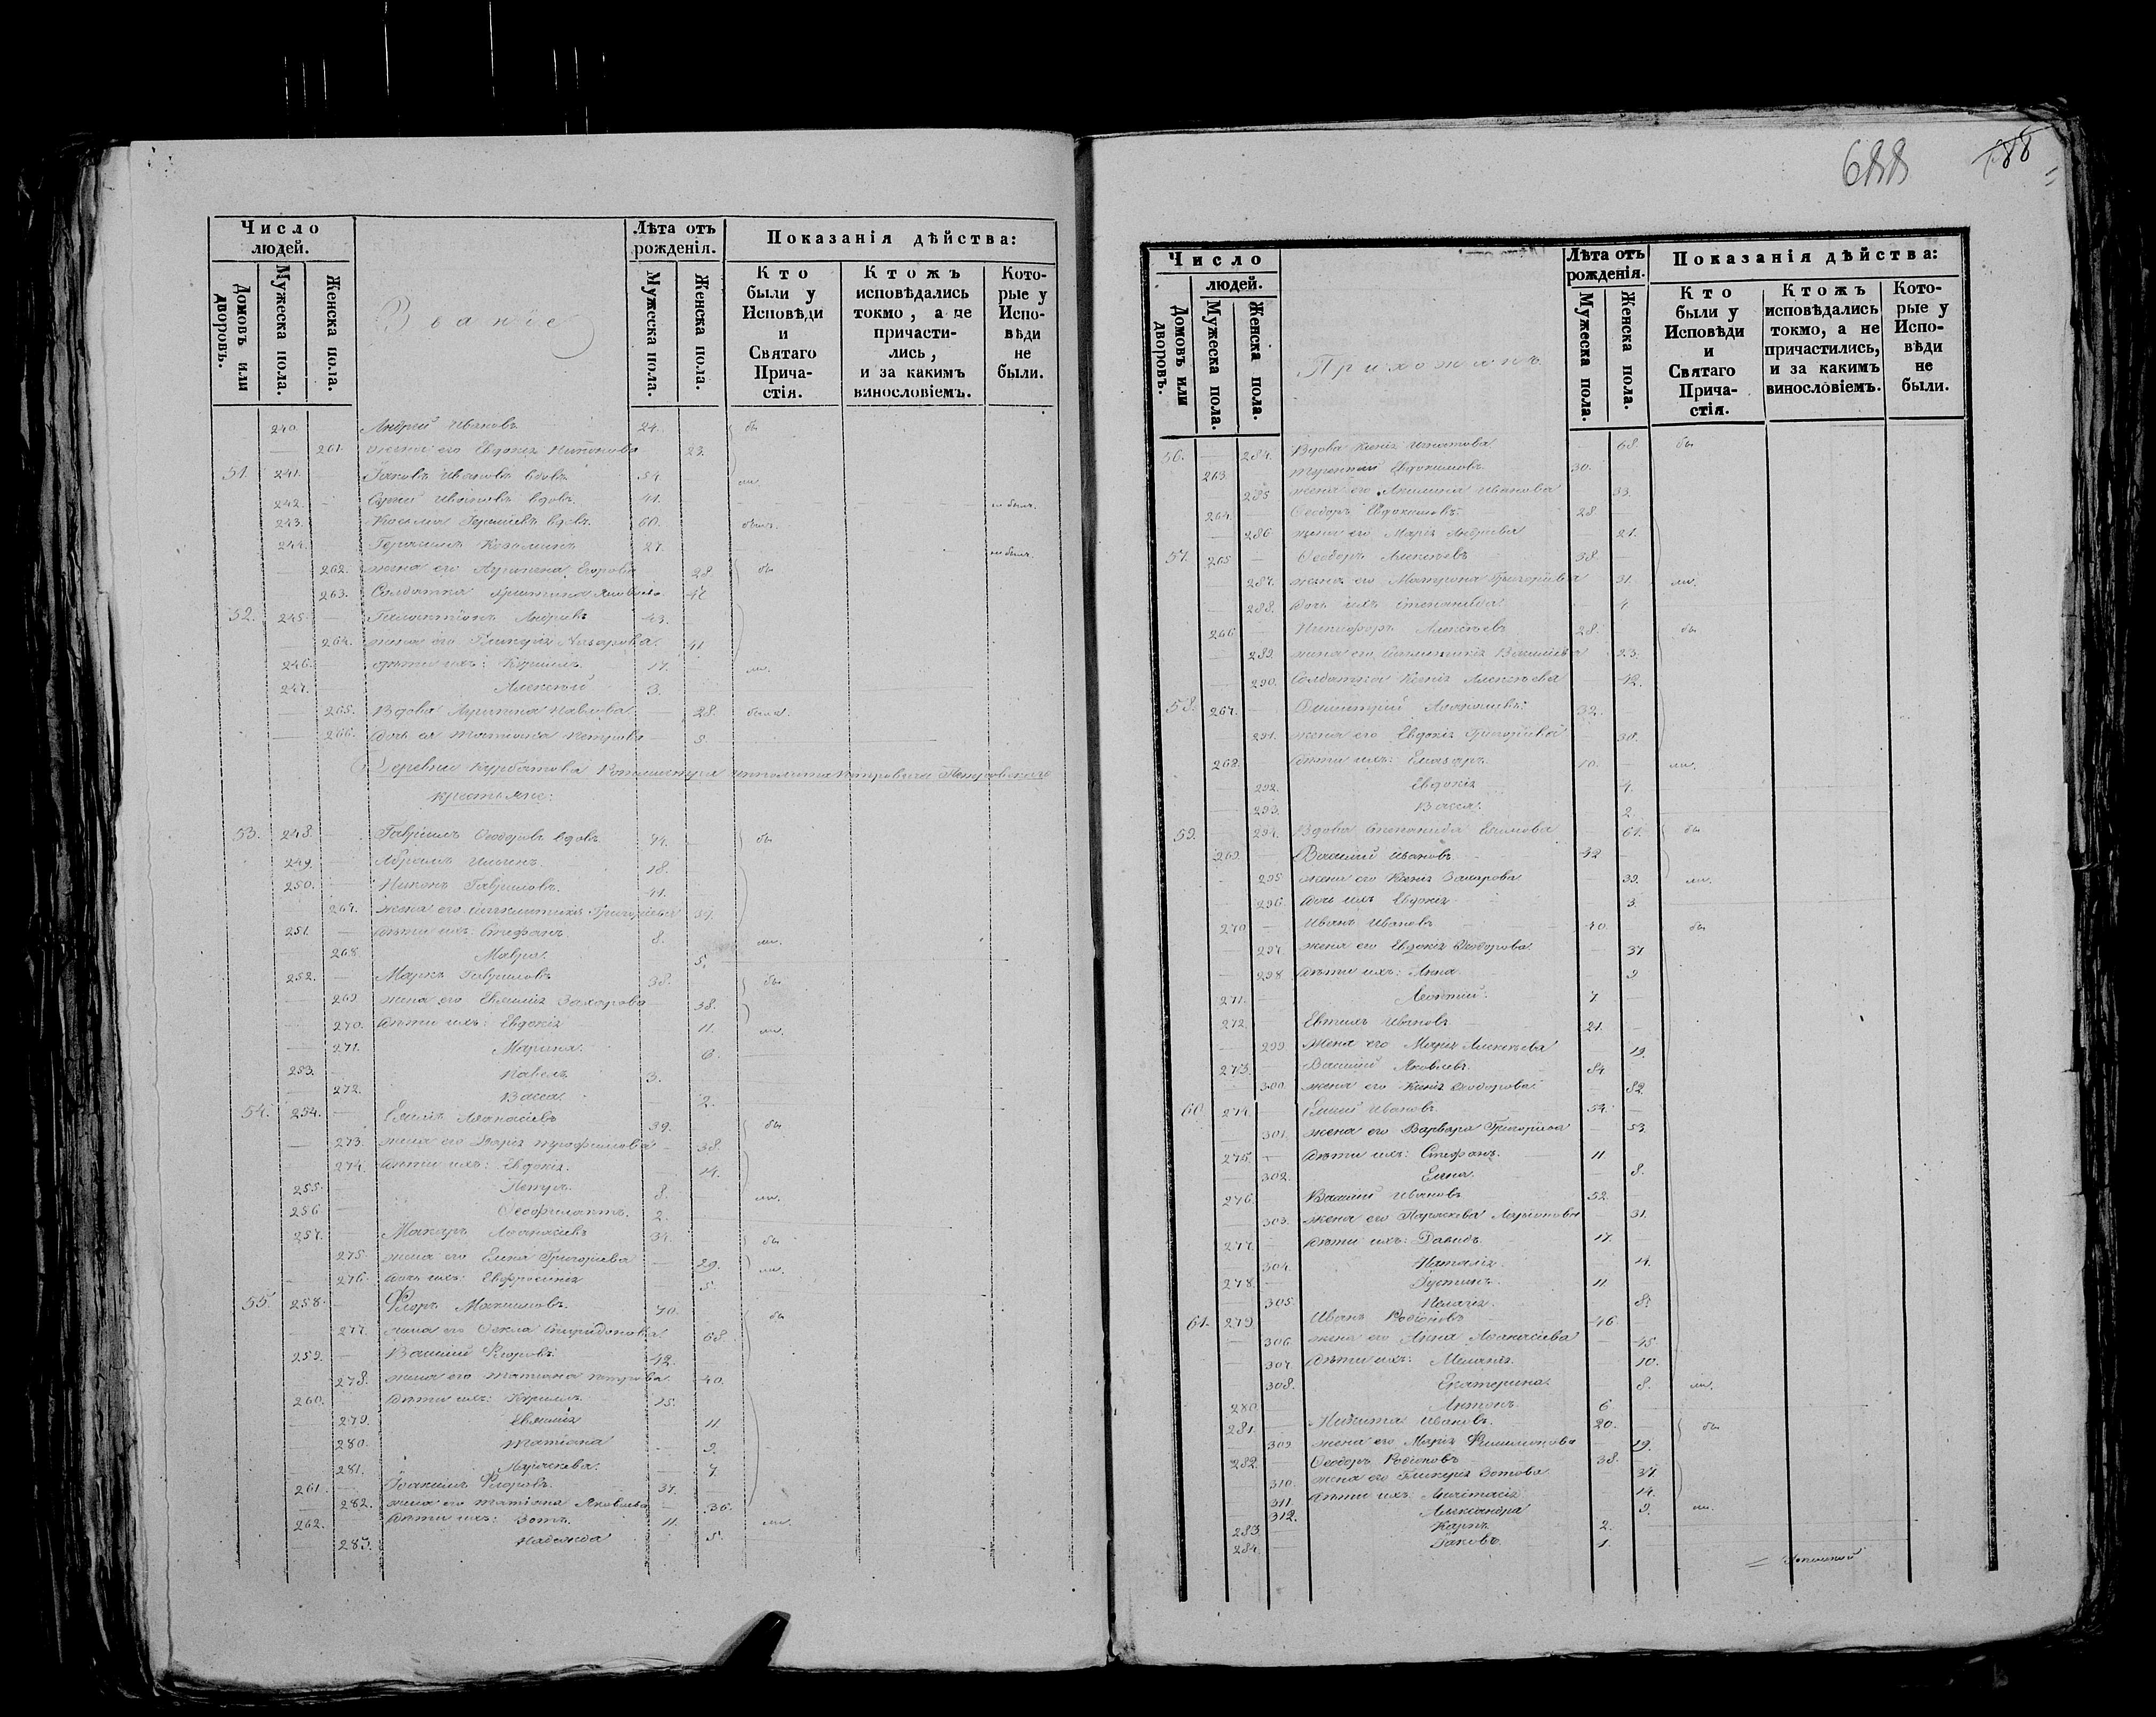 Число людей.
Домовъ или дворовъ.
Мужеска пола.
Женска пола.
Званіе
Лѣта отъ рожденія.
Мужеска пола.
Женска пола.
Показанія дѣйства:
Кто были у Исповѣди и Святаго Прича-стія.
Ктожъ исповѣдались токмо, а не причасти-лись, и за какимъ винословіемъ.
Кото-рые у Испо-вѣди не были.
240. Андрей Ивановъ 24. бы
261. жена его Евдокія 23.
51. 241. Іаковъ Ивановъ вдовъ 54 ли.
242. Ивановъ вдовъ. 41. не былъ.
243. Косьма вдовъ. 60. былъ.
244. Герасимъ Козьминъ 27. не былъ.
262. жена его Егорова 28. бы
263. Солдатка Яковлева
52. 245. Галактіонъ Андреевъ 43.
264. жена его Гликерія Назарова 41
246. дѣти ихъ: Кириллъ 17. ли.
247. Алексѣй 3.
265. Вдова Павлова 28. была.
266. дочь ея Татіана Петрова 3.
Деревни Курбатова Петровскаго
крестьяне:
53. 248. Гавріилъ Ѳеодоровъ вдовъ 74. бы
249. Абрамъ Ильинъ 18.
250. Никонъ Гавриловъ 41.
267. жена его Григорьева 39.
251. дѣти ихъ: Стефанъ 8. ли.
268. Мавра 5.
252. Маркъ Гавриловъ 38. бы
269 жена его Захарова 38.
270. дѣти ихъ: Евдокія 11. ли.
271. Марина 6.
253. Павелъ 3.
272. Васса 2.
54. 254. Аѳанасьевъ 39. бы
273. жена его Дарія Трофимова 38.
274. дѣти ихъ: Евдокія. 14.
255. Петръ 8. ли.
256 Ѳеофилактъ. 2.
257. Макаръ Аѳанасьевъ 34. бы
275. жена его Елена Григорьева 29. ли.
276. дочь ихъ: Евфросинія 5.
55. 258. Флоръ Максимовъ 70. бы
277. жена его Ѳекла Спиридонова 68.
259. Василій Флоровъ 42.
278. жена его Татіана Петрова 40.
260. дѣти ихъ: Кириллъ 15.
279. 11
280. Татіана 9.
281. Параскева. 7.
261. Іоакимъ Флоровъ 37.
282. жена его Татіана Яковлева 36.
262. дѣти ихъ: Зотъ. 11. ли.
283. Надежда 5.
688 88
Число людей.
Домовъ или дворовъ.
Мужеска пола.
Женска пола.
Прихожанъ.
Лѣта отъ рожденія.
Мужеска пола.
Женска пола.
Показанія дѣйства:
Кто были у Исповѣди и Святаго Прича-стія.
Ктожъ исповѣдались токмо, а не причастились, и за какимъ винословіемъ.
Кото-рые у Испо-вѣди не были.
56. 284. Вдова Ксенія Игнатова 68. бы
263. Терентій Евдокимовъ 30.
285 жена его Акилина Иванова 33.
264. Ѳеодоръ Евдокимовъ 28
286. жена его Марія Андреева 21.
57. 265 Ѳеодоръ Алексѣевъ 38.
287. жена его Матрона Григорьева 31. ли.
288. дочь ихъ Степанида 4
266 Никифоръ Алексѣевъ 28. бы
289. жена его Васильева 23.
290. Солдатка Ксенія Алексѣева 42.
58. 267. Димитрій Аѳанасьевъ 32.
291. жена его Евдокія Григорьева 30.
268. дѣти ихъ: Елизаръ 10. ли.
292. Евдокія 4.
293. Васса 2.
59. 294. Вдова Степанида Ефимова 61. бы
269. Василій Ивановъ 42
295 жена его Ксенія Захарова 39. ли.
296. дочь ихъ Евдокія 3.
270 Иванъ Ивановъ 40. бы
297. жена его Евдокія Ѳеодорова 37
298 дѣти ихъ: Анна 9
271. Леонтій 7
272. Евтихъ Ивановъ 21.
299 Жена его Марія Алексѣева 19.
273. Василій Яковлевъ 84
300. жена его Ксенія Ѳеодорова 82.
60 274. Ивановъ 54.
301. жена его Варвара Григорьева 53.
275. дѣти ихъ: Стефанъ. 11
302. Елена 8.
276. Василій Ивановъ 52.
303. жена его Параскева Ларіонова 31.
277. дѣти ихъ: Давидъ 17.
304. Наталія 14.
278. Іустинъ 11
305. Пелагія. 8.
61. 279 Иванъ Родіоновъ 46
306. жена его Анна Аѳанасьева 45.
307. дѣти ихъ: Меланія. 10.
308. Екатерина 8. ли.
280. Антонъ 6
281. Никита Ивановъ. 20. бы
309 жена его Марія Филимонова 19.
282. Ѳеодоръ Родіоновъ 38.
310. жена его Гликерія Зотова 37.
311. дѣти ихъ: Анастасія 14.
312. Александра 9. ли.
283. Карпъ 2.
284. Іаковъ. 1.